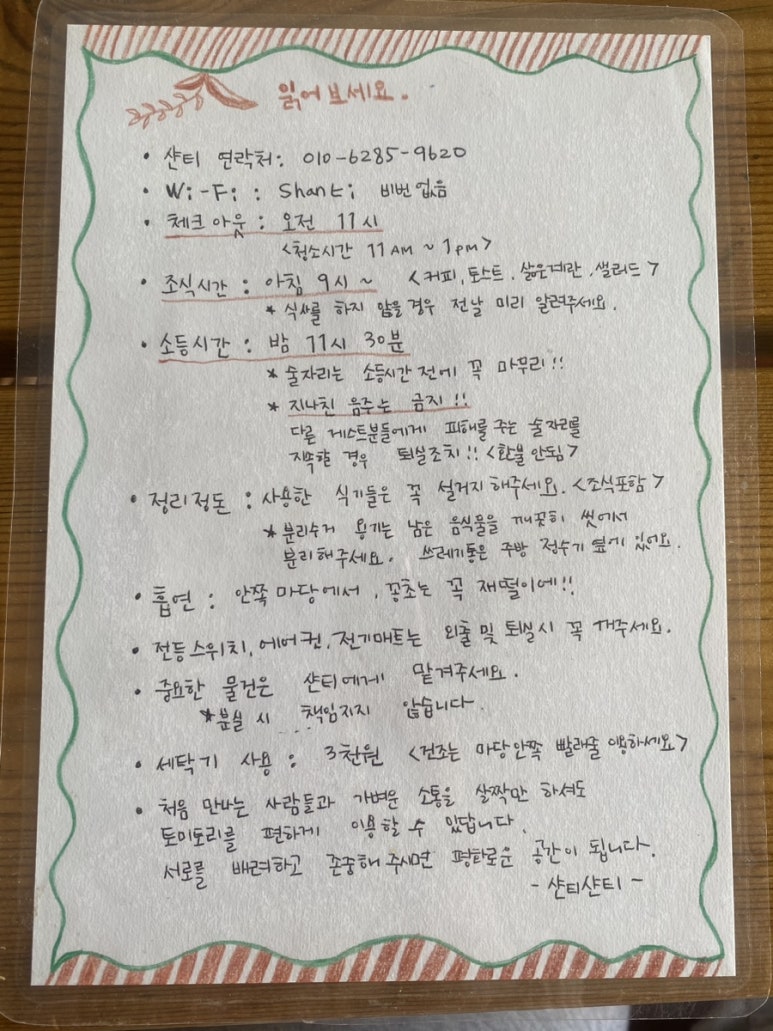 읽어보세요.
• 샨티 연락처: 010-6285-9620
• Wi-Fi : Shanti 비번없음
• 체크아웃 : 오전 11시
<청소시간 11AM ~ 1PM>
• 조식시간 : 아침 9시 ~ <커피, 토스트, 삶은계란, 샐러드>
* 식사를 하지 않을 경우 전날 미리 알려주세요.
• 소등시간 : 밤 11시 30분
* 술자리는 소등시간 전에 꼭 마무리!!
* 지나친 음주는 금지!!
다른 게스트분들에게 피해를 주는 술자리를
지속할 경우 퇴실조치!! <환불 안됨>
• 정리정돈 : 사용한 식기들은 꼭 설거지해주세요. <조식포함>
* 분리수거 용기는 남은 음식물을 깨끗히 씻어서
분리해주세요. 쓰레기통은 주방 정수기 옆에 있어요.
• 흡연 : 안쪽마당에서, 꽁초는 꼭 재떨이에!!
• 전등스위치, 에어컨, 전기매트는 외출 및 퇴실시 꼭 꺼주세요.
• 중요한 물건은 샨티에게 맡겨주세요.
* 분실 시 책임지지 않습니다.
• 세탁기 사용 : 3천원 <건조는 마당안쪽 빨래줄 이용하세요>
• 처음 만나는 사람들과 가벼운 소통을 살짝만 하셔도
도미토리를 편하게 이용할 수 있답니다.
서로를 배려하고 존중해주시면 평화로운 공간이 됩니다.
- 샨티샨티 -